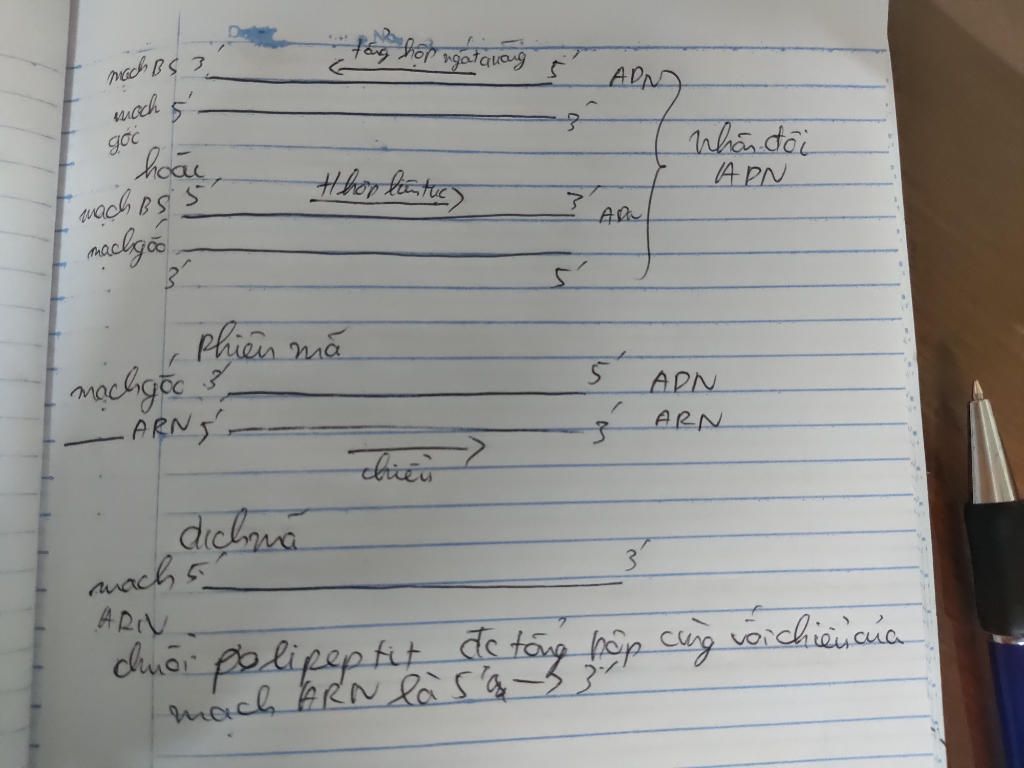 tổng hợp ngắt quãng
mạch BS 3' 5' ADN
mạch 5' 3'
gốc
Nhân đôi
ADN
hoặc
T hợp liên tục
mạch BS 5' 3' ADN
mạch gốc
3' 5'
Phiên mã
mạch gốc 3' 5' ADN
ARN 5' 3' ARN
chiều
dịch mã
mạch 5' 3'
ARN
chuỗi polipeptit đc tổng hợp cùng với chiều của
mạch ARN là 5' → 3'